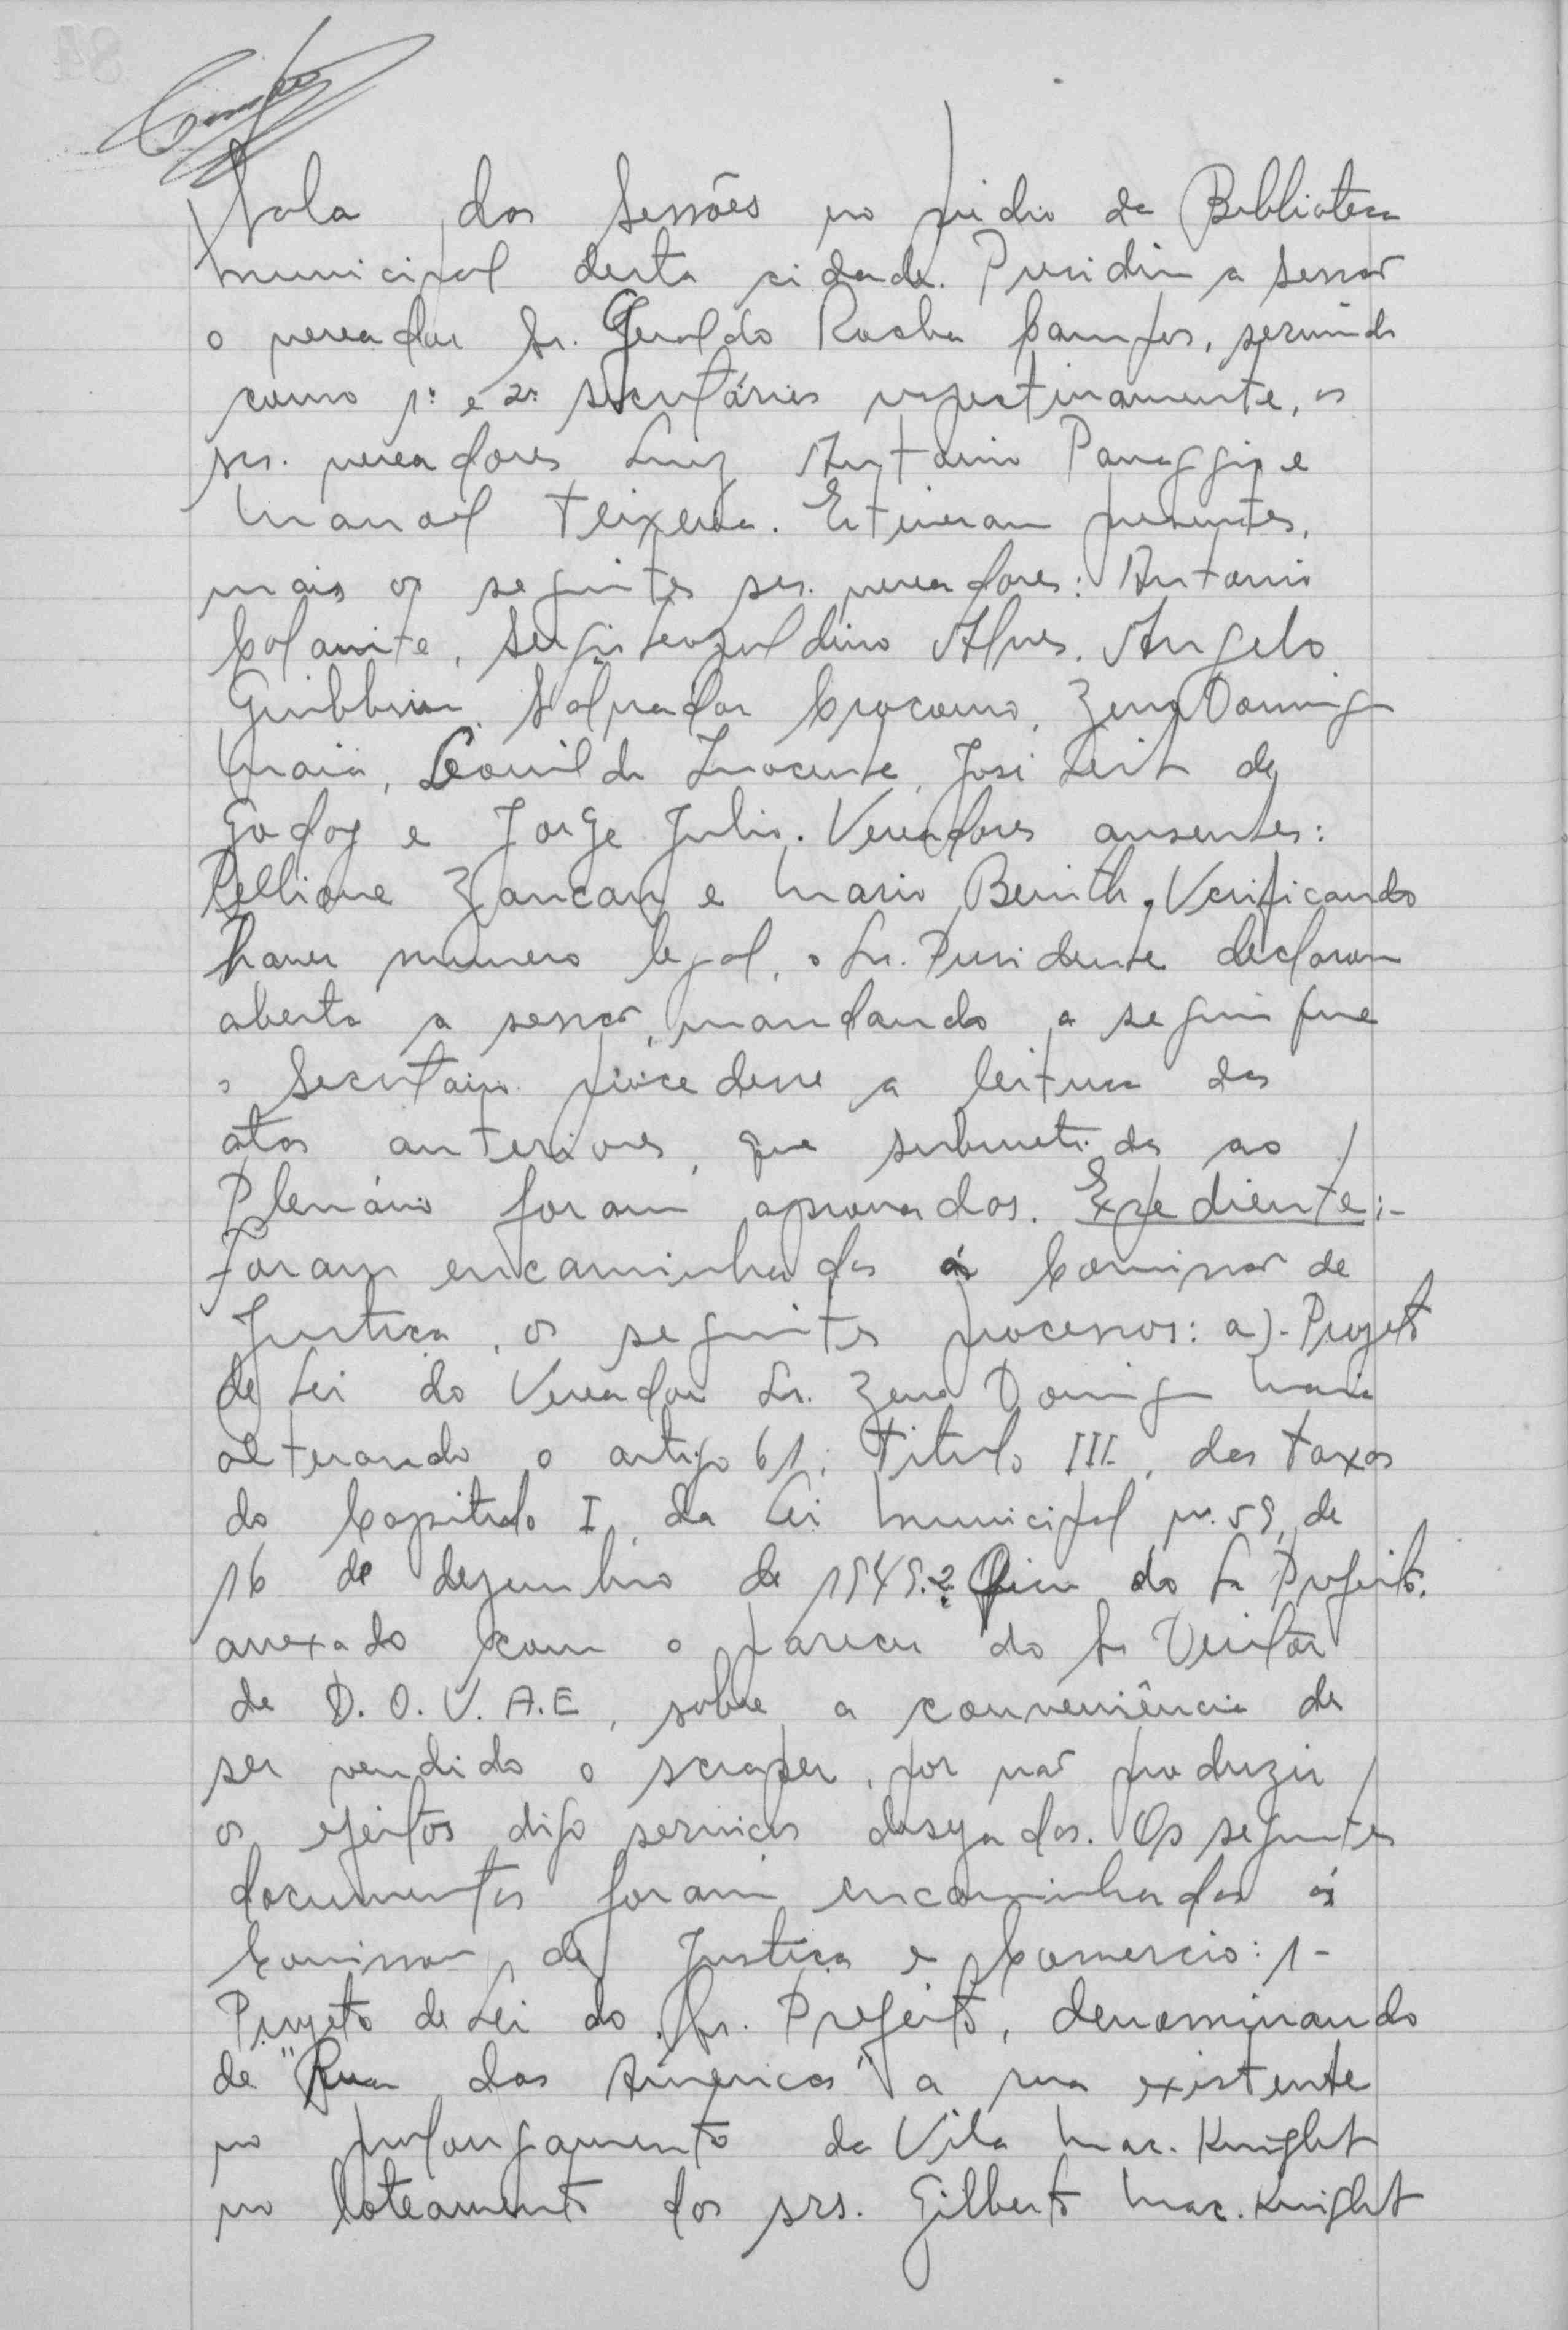 Sala das Sessões no prédio da Biblioteca
Municipal desta cidade. Presidiu a sessão
o vereador Sr. Geraldo Rocha Campos, servindo
como 1º e 2º secretários respectivamente, os
srs. vereadores Luiz Antonio Panaggio e
Manoel Teixeira. Estiveram presentes,
mais os seguintes srs. vereadores: Antonio
Angelo
Salvador Zeno Domingos
Maia, Leonildo Inocente, José Leite de
Godoy e Jorge Julio. Vereadores ausentes:
Pellione Zancan e Mario Benith. Verificando
haver numero legal, o Sr. Presidente declarou
aberta a sessão, mandando a seguir que
o Secretário procedesse a leitura das
atas anteriores, que submetidas ao
Plenário foram aprovadas. Expediente:-
Foram encaminhados á Comissão de
Justiça, os seguintes processos: a)- Projeto
de Lei do Vereador Sr. Zeno Domingos Maia
alterando o artigo 61, Titulo III, das taxas
do Capitulo I, da Lei Municipal nº. 59, de
16 de dezembro de 1949. 2. Oficio do Sr Prefeito,
anexado com o parecer do Sr Diretor
de D. O. V. A. E, sobre a conveniência de
ser vendido o scraper, por não produzir
os efeitos digo serviços desejados. Os seguintes
documentos foram encaminhados ás
Comissão de Justiça e Comercio: 1-
Projeto de Lei do Sr. Prefeito, denominando
de "Rua das Américas" a rua existente
no prolongamento da Vila Mac. Knight
no loteamento dos srs. Gilberto Mac. Knight